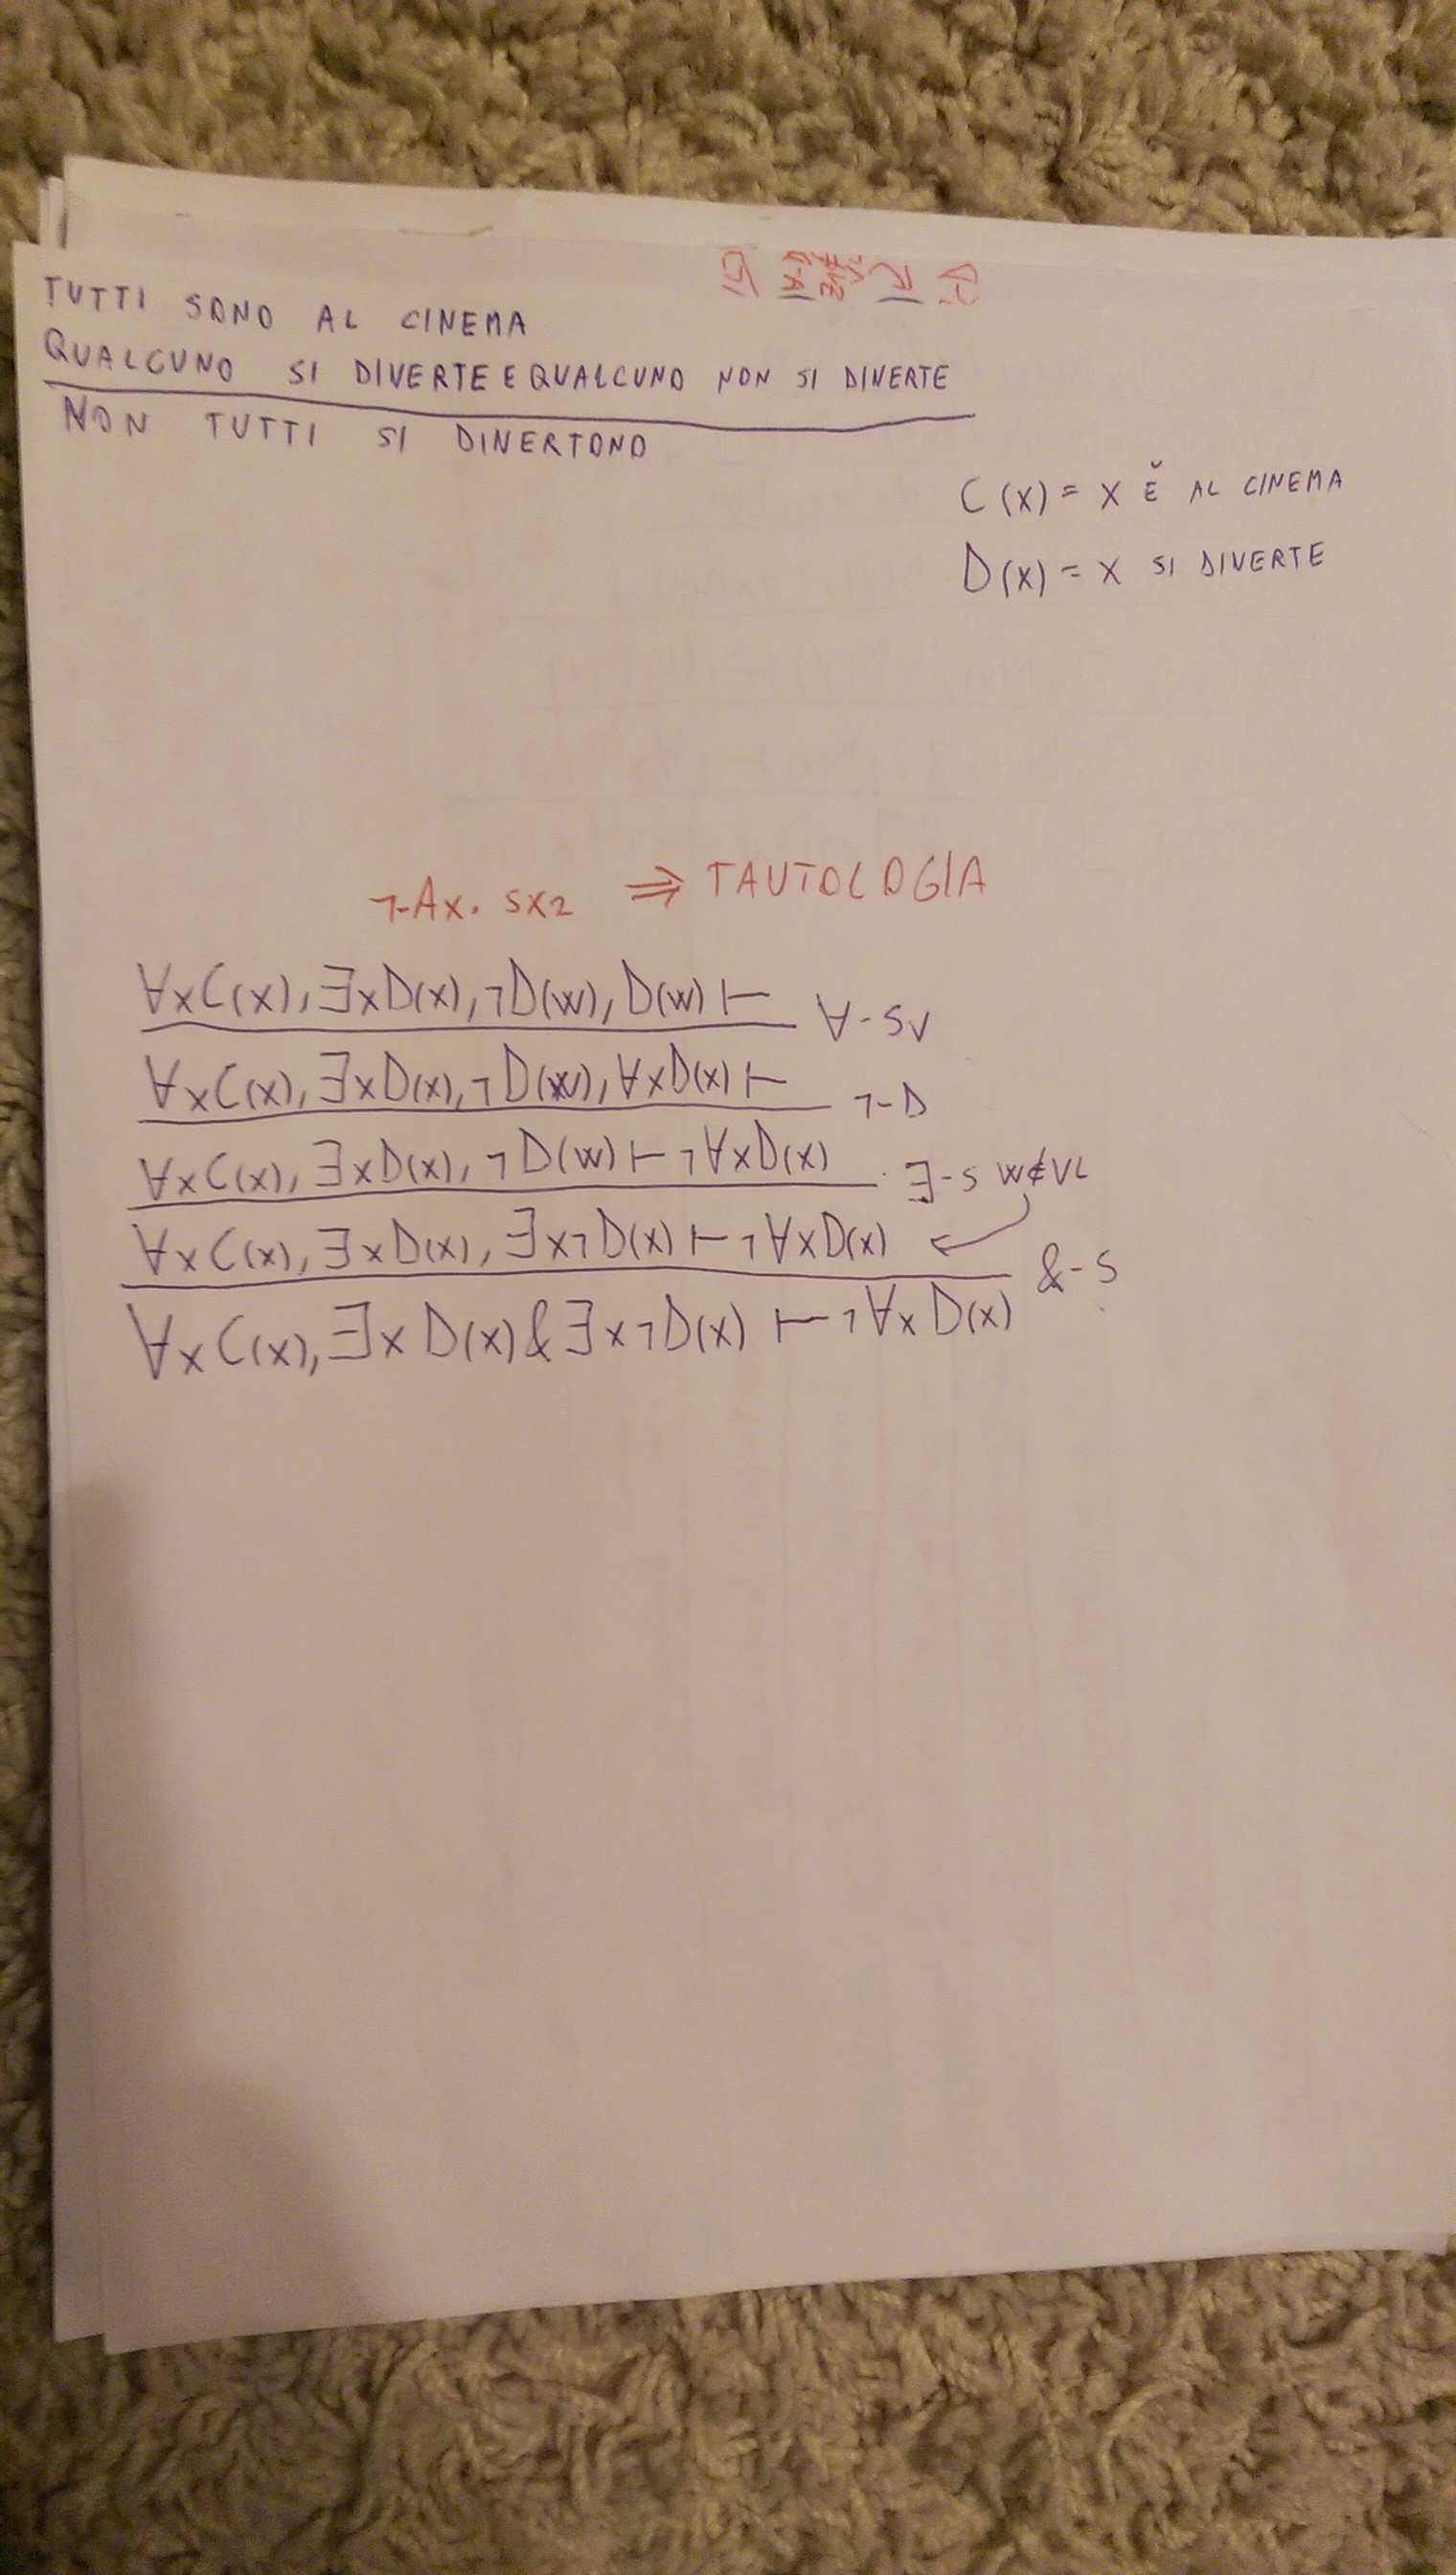 TUTTI SONO AL CINEMA
QUALCUNO SI DIVERTE E QUALCUNO NON SI DIVERTE
NON TUTTI SI DIVERTONO
C(x) = x È AL CINEMA
D(x) = x SI DIVERTE
¬-Ax. sx2 ⇒ TAUTOLOGIA
∀xC(x), ∃xD(x), ¬D(w), D(w) ⊢ ∀-Sv
∀xC(x), ∃xD(x), ¬D(w), ∀xD(x) ⊢ ¬-D
∀xC(x), ∃xD(x), ¬D(w) ⊢ ¬∀xD(x) ∃-S w∉VL
∀xC(x), ∃xD(x), ∃x¬D(x) ⊢ ¬∀xD(x) &-S
∀xC(x), ∃xD(x)&∃x¬D(x) ⊢ ¬∀xD(x)